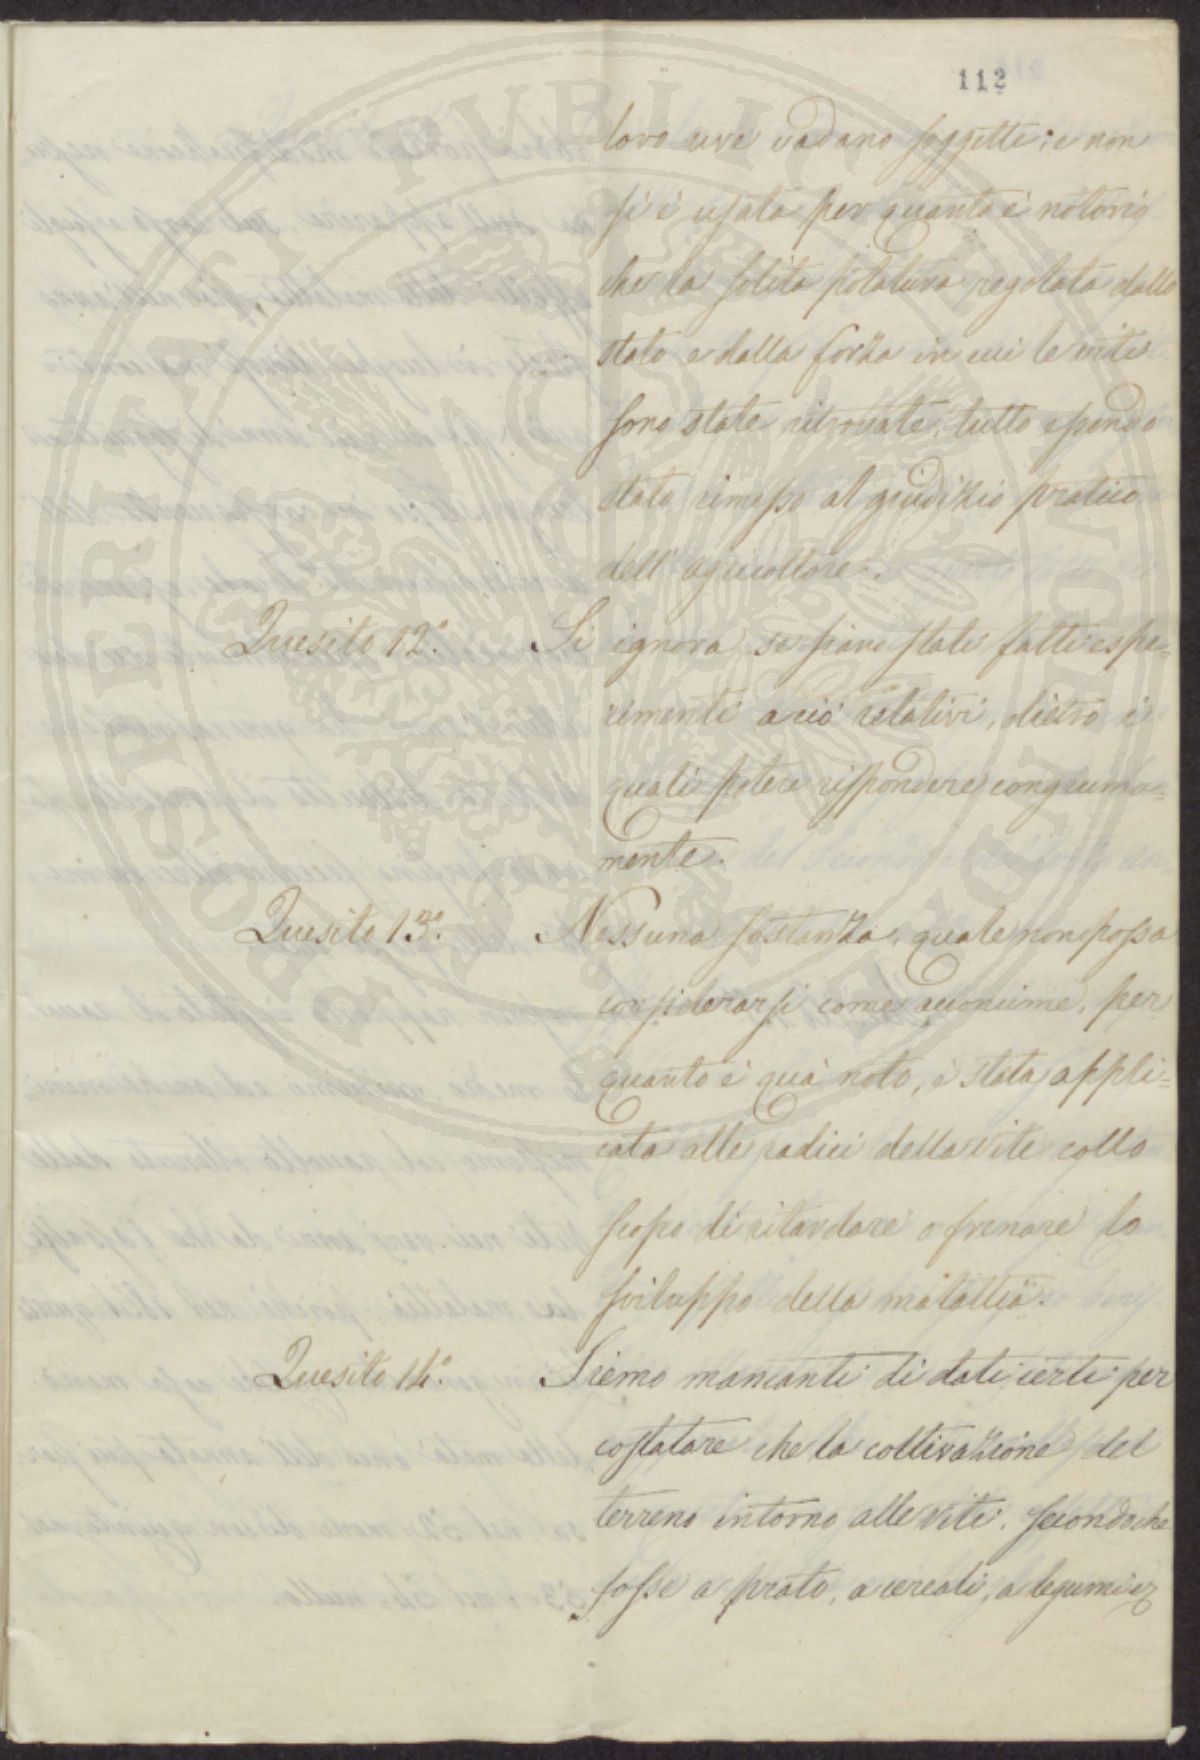 112
loro uve vadano soggette: e non
si è usata per quanto è notorio
che la solita potatura regolata dallo
stato e dalla forza in cui le viti
sono state ritrovate, tutto essendo
stato rimesso al giudizio pratico
dell'agricoltore.
Quesito 12º. Si ignora se siano stati fatti espe=
rimenti a ciò relativi, dietro i
quali potere rispondere congruma=
mente.
Quesito 13º. Nessuna sostanza, quale non possa
considerarsi come acconcime, per
quanto è quà noto, è stata appli=
cata alle radici della vite collo
scopo di ritardare o frenare lo
sviluppo della malattia.
Quesito 14º. Siemo mancanti di dati certi per
costatare che la coltivazione del
terreno intorno alle viti, secondo che
fosse a prato, a cereali, a legumi
PROSPERITATI PUBLICAE AUGENDAE